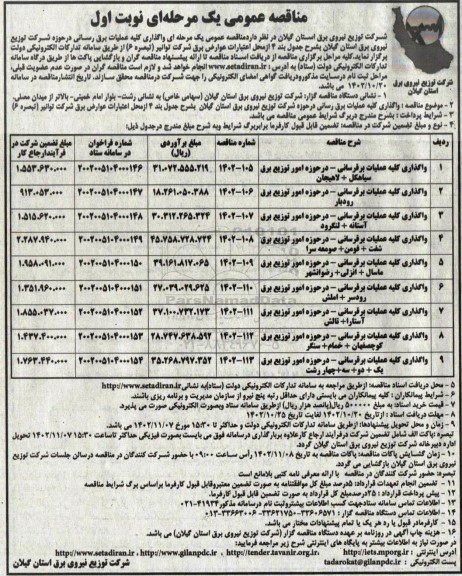 مناقصه عمومی یک مرحله‌ای نوبت اول
شرکت توزیع نیروی برق استان گیلان در نظر دارد مناقصه عمومی یک مرحله ای واگذاری کلیه عملیات برق رسانی درحوزه شرکت توزیع
نیروی برق استان گیلان بشرح جدول بند ۴ از محل اعتبارات عوارض برق شرکت توانیر (تبصره ۶) از طریق سامانه تدارکات الکترونیکی دولت
برگزار نماید. کلیه مراحل برگزاری مناقصه از دریافت اسناد مناقصه تا ارائه پیشنهاد مناقصه گران و بازگشایی پاکت ها از طریق درگاه سامانه
تدارکات الکترونیکی دولت (ستاد) به آدرس www.setadiran.ir انجام خواهد شد و لازم است مناقصه گران در صورت عدم عضویت قبلی،
مراحل ثبت نام درسایت مذکور ودریافت گواهی امضای الکترونیکی را جهت شرکت درمناقصه محقق سازند. تاریخ انتشار مناقصه در سامانه
۱۴۰۲/۱۰/۲۰ می باشد.
شرکت توزیع نیروی برق
استان گیلان
۱ - نشانی دستگاه مناقصه گزار: شرکت توزیع نیروی برق استان گیلان (سهامی خاص) به نشانی رشت- بلوار امام خمینی- بالاتر از میدان مصلی.
۲ - موضوع مناقصه : واگذاری کلیه عملیات برق رسانی درحوزه شرکت توزیع نیروی برق استان گیلان بشرح جدول بند ۴ از محل اعتبارات عوارض برق شرکت توانیر (تبصره ۶)
۳ - شرایط پرداخت : بشرح مندرج دربرگ شرایط عمومی مناقصه می باشد.
۴ - نوع و مبلغ تضمین شرکت در مناقصه: تضمین قابل قبول کارفرما برابربرگ شرایط وبه شرح مبلغ مندرج درجدول ذیل:
ردیف شرح مناقصه شماره مناقصه مبلغ برآوردی (ریال) شماره فراخوان در سامانه ستاد مبلغ تضمین شرکت در فرآیندارجاع کار
۱ واگذاری کلیه عملیات برقرسانی – درحوزه امور توزیع برق سیاهکل + لاهیجان ۱۴۰۲-۱۰۵ ۳۱.۰۷۲.۵۵۵.۲۱۹ ۲۰۰۲۰۰۵۱۰۴۰۰۰۱۴۶ ۱.۵۵۳.۶۳۰.۰۰۰
۲ واگذاری کلیه عملیات برقرسانی – درحوزه امور توزیع برق رودبار ۱۴۰۲-۱۰۶ ۱۸.۲۶۱.۰۵۰.۳۸۸ ۲۰۰۲۰۰۵۱۰۴۰۰۰۱۴۷ ۹۱۳.۰۵۳.۰۰۰
۳ واگذاری کلیه عملیات برقرسانی – درحوزه امور توزیع برق آستانه + لنگرود ۱۴۰۲-۱۰۷ ۳۰.۳۱۲.۲۶۵.۳۲۴ ۲۰۰۲۰۰۵۱۰۴۰۰۰۱۴۸ ۱.۵۱۵.۶۲۰.۰۰۰
۴ واگذاری کلیه عملیات برقرسانی – درحوزه امور توزیع برق شفت + فومن+ صومعه سرا ۱۴۰۲-۱۰۸ ۴۵.۷۵۸.۷۲۸.۷۲۴ ۲۰۰۲۰۰۵۱۰۴۰۰۰۱۴۹ ۲.۲۸۷.۹۴۰.۰۰۰
۵ واگذاری کلیه عملیات برقرسانی – درحوزه امور توزیع برق ماسال + انزلی+ رضوانشهر ۱۴۰۲-۱۰۹ ۳۹.۱۶۱.۸۱۷.۰۶۵ ۲۰۰۲۰۰۵۱۰۴۰۰۰۱۵۰ ۱.۹۵۸.۰۹۱.۰۰۰
۶ واگذاری کلیه عملیات برقرسانی – درحوزه امور توزیع برق رودسر + املش ۱۴۰۲-۱۱۰ ۲۷.۰۳۹.۰۲۹.۶۲۵ ۲۰۰۲۰۰۵۱۰۴۰۰۰۱۵۱ ۱.۳۵۱.۹۶۰.۰۰۰
۷ واگذاری کلیه عملیات برقرسانی – درحوزه امور توزیع برق آستارا+ تالش ۱۴۰۲-۱۱۱ ۳۷.۱۰۰.۷۳۲.۱۷۳ ۲۰۰۲۰۰۵۱۰۴۰۰۰۱۵۲ ۱.۸۵۵.۰۳۷.۰۰۰
۸ واگذاری کلیه عملیات برقرسانی – درحوزه امور توزیع برق کوچصفهان + خمام+ سنگر ۱۴۰۲-۱۱۲ ۲۸.۷۴۷.۶۳۸.۵۹۲ ۲۰۰۲۰۰۵۱۰۴۰۰۰۱۵۳ ۱.۴۳۷.۴۰۰.۰۰۰
۹ واگذاری کلیه عملیات برقرسانی – درحوزه امور توزیع برق یک + دو+ سه+چهار رشت ۱۴۰۲-۱۱۳ ۳۵.۲۶۸.۷۹۷.۳۵۲ ۲۰۰۲۰۰۵۱۰۴۰۰۰۱۵۴ ۱.۷۶۳.۴۴۰.۰۰۰
۵ – محل دریافت اسناد مناقصه: ازطریق مراجعه به سامانه تدارکات الکترونیکی دولت (ستاد)به نشانی http://www.setadiran.ir
۶ – شرایط پیمانکاران : کلیه پیمانکاران می بایستی دارای حداقل رتبه پنج نیرو از سازمان مدیریت و برنامه ریزی باشند.
۷ – قیمت خرید اسناد: به مبلغ ۵۰۰۰۰۰ ریال(پانصد هزار ریال) ازطریق سامانه ستاد وبصورت الکترونیکی صورت می پذیرد.
۸ – مهلت دریافت اسناد : ازتاریخ ۱۴۰۲/۱۰/۲۰ لغایت تاریخ ۱۴۰۲/۱۰/۲۵
۹ – زمان و محل تحویل پیشنهادها: ازطریق سامانه تدارکات الکترونیکی دولت و حداکثر تا ۱۵:۳۰ مورخ ۱۴۰۲/۱۱/۰۷ می باشد.
تبصره ۱:پاکت الف شامل تضمین شرکت درفرآیند ارجاع کارعلاوه بربارگذاری درسامانه فوق می بایست بصورت فیزیکی حداکثر تا ساعت ۱۵:۳۰ ۱۴۰۲/۱۱/۰۷ تحویل
اداره دبیرخانه شرکت توزیع نیروی برق استان گیلان گردد.
۱۰ – زمان گشایش پاکات مناقصه: پاکات مناقصه به تاریخ ۱۴۰۲/۱۱/۰۸ رأس ساعت ۰۹:۰۰ با حضور شرکت کنندگان در مناقصه درسالن جلسات شرکت توزیع
نیروی برق استان گیلان بازگشایی می گردد.
تبصره: حضور شرکت کنندگان در مناقصه با ارائه معرفی نامه کتبی بلامانع است
۱۱ – تضمین انجام تعهدات قرارداد: ۵درصد مبلغ کل موافقتنامه به صورت تضمین معتبروقابل قبول کارفرما براساس برگ شرایط مناقصه
۱۲ – پیش پرداخت قرارداد : ۲۵درصدمبلغ کل قرارداد به صورت تضمین قابل قبول کارفرما.
۱۳ – اطلاعات تماس سامانه ستادجهت کسب اطلاعات بیشترولیت نام درسامانه مذکور۴۱۹۳۴-۰۲۱
۱۴ – اطلاعات تماس دستگاه مناقصه گزار : ۳۳۶۰۶۵۷۱-۳۳۶۲۱۷۵۰-۳۳۶۶۳۰۰۶-۰۱۳
۱۵ – کارفرمادر قبول یا رد هر یک یا تمام پیشنهادات مختار می باشد.
۱۶ – هزینه چاپ آگهی در روزنامه بر عهده دستگاه مناقصه گزار (شرکت توزیع نیروی برق استان گیلان) می باشد.
در صورت نیاز به اطلاعات بیشتر به پایگاه های اینترنتی شرح زیر مراجعه فرمایید:
آدرس اینترنتی : http://iets.mporg.ir ، http://tender.tavanir.org.ir ، http://www.gilanpdc.ir ، http://www.setadiran.ir
پست الکترونیکی : tadarokat@gilanpdc.ir
شرکت توزیع نیروی برق استان گیلان